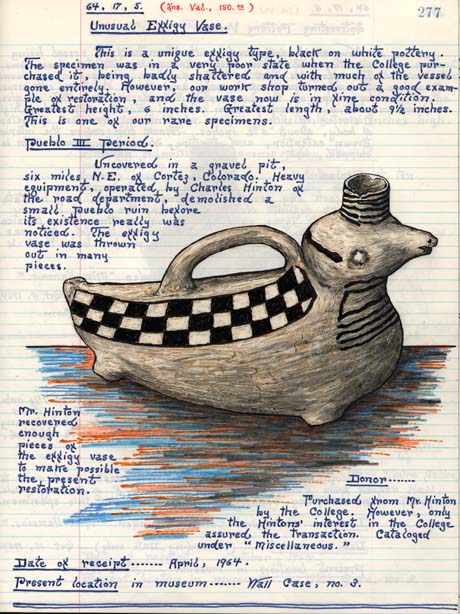 64, 17, 5. (Ins. Val., 150.00)
277
Unusual Effigy Vase.
This is a unique effigy type, black on white pottery.
The specimen was in a very poor state when the College pur-
chased it, being badly shattered and with much of the vessel
gone entirely. However, our work shop turned out a good exam-
ple of restoration, and the vase now is in fine condition.
Greatest height, 6 inches. Greatest length, about 9½ inches.
This is one of our rare specimens.
Pueblo III Period.
Uncovered in a gravel pit,
six miles, N.E. of Cortez, Colorado. Heavy
equipment, operated, by Charles Hinton of
the road department, demolished a
small Pueblo ruin before
its existence really was
noticed. The effigy
vase was thrown
out in many
pieces.
Mr. Hinton
recovered
enough
pieces of
the effigy vase
to make possible
the, present
restoration.
Donor-------
Purchased from Mr. Hinton
by the College. However, only
the Hintons' interest in the College
assured the Transaction. Cataloged
under "Miscellaneous."
Date of receipt------- April, 1964.
Present location in museum------- Wall Case, no. 3.